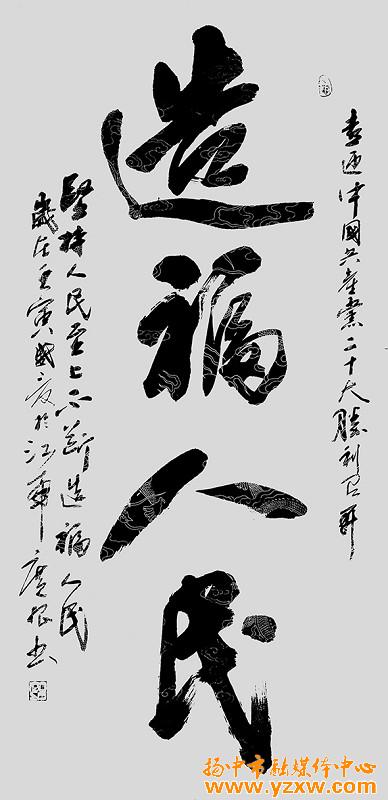 喜迎中國共產黨二十大勝利召開
造福人民
堅持人民至上不斷造福人民
歲在壬寅國慶於江 廣根书
扬中市融媒体中心
www.yzxw.com